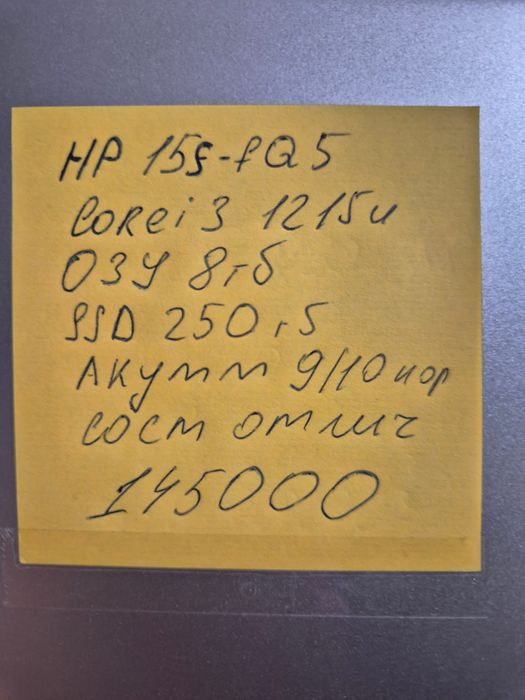 HP 15s-fQ5
Corei3 1215u
ОЗУ 8гб
SSD 250гб
Акумм 9/10 нор
сост отлич
145000